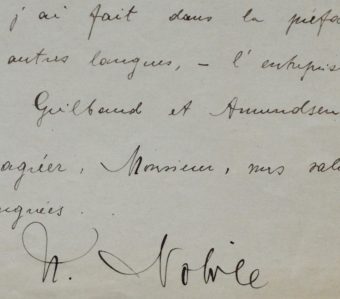 j'ai fait dans la préfa
autres langues, – l'entrepris
Guilbaud et Amundsen
agréer, Monsieur, mes salu
inguées.
U. Nobile